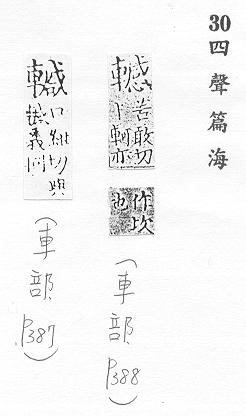 30四聲篇海
轗苦敢切
丨軻亦
作坎
也
(車部 P388)
口紺切與
義同
(車部 P387)